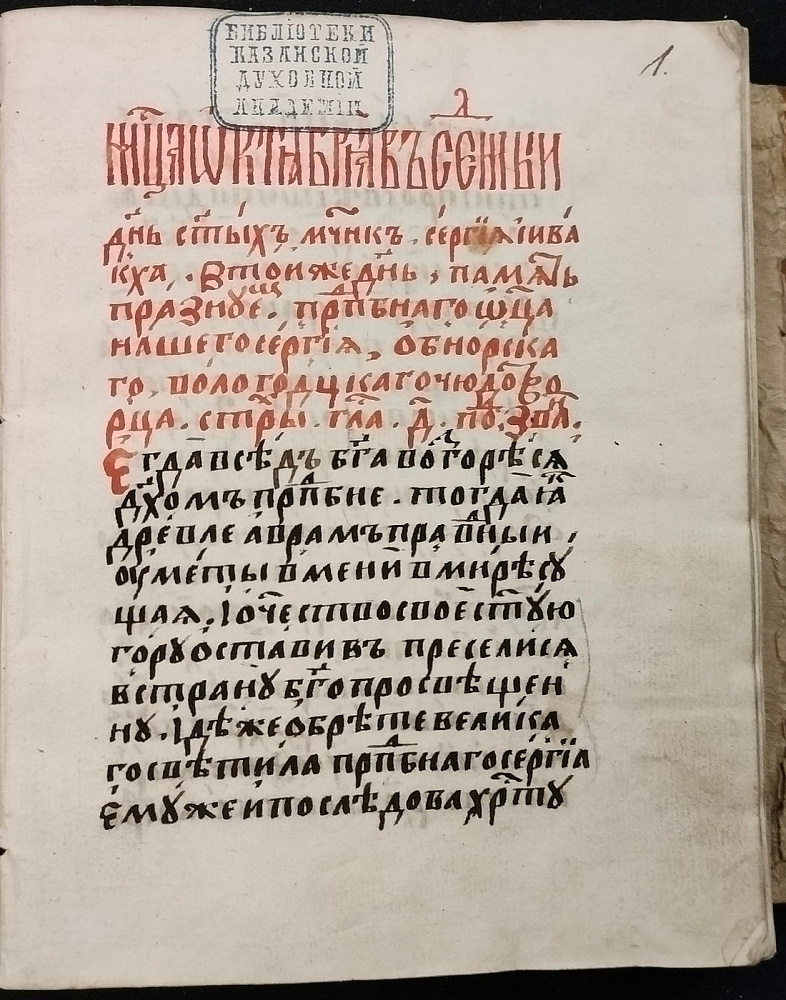 БИБЛІОТЕКИ
КАЗАНСКОЙ
ДУХОВНОЙ
АКАДЕМІИ
1.
мц҃а ѡктѧбрѧ въ семы и
дн҃ь ст҃ыхъ мч҃нкъ. сергїѧ і ива
кха. В тои же дн҃ь, памѧть
празнуе. прпⷣбнаго ѡц҃а
нашего сергїѧ, обнорска
го. вологодцкаго чюдотво
рца. стт҃ры. гла. д҃. поⷣ. звѧ.
Егда всѣдъ бг҃а возгорѣсѧ
дх҃омъ прпⷣбне. тогда іа҃
древле аврамъ праⷡ҇ныи,
ѹметы вмений в мирѣ сꙋ
щаѧ. І очество свое ст҃ую
горꙋ оставивъ преселисѧ
в странꙋ бг҃опросвѣщен
нꙋ. Ідѣже обрѣте велика
го свѣтила прпⷣбнаго сергїа
Емꙋже и послѣдова хрⷭ҇тꙋ